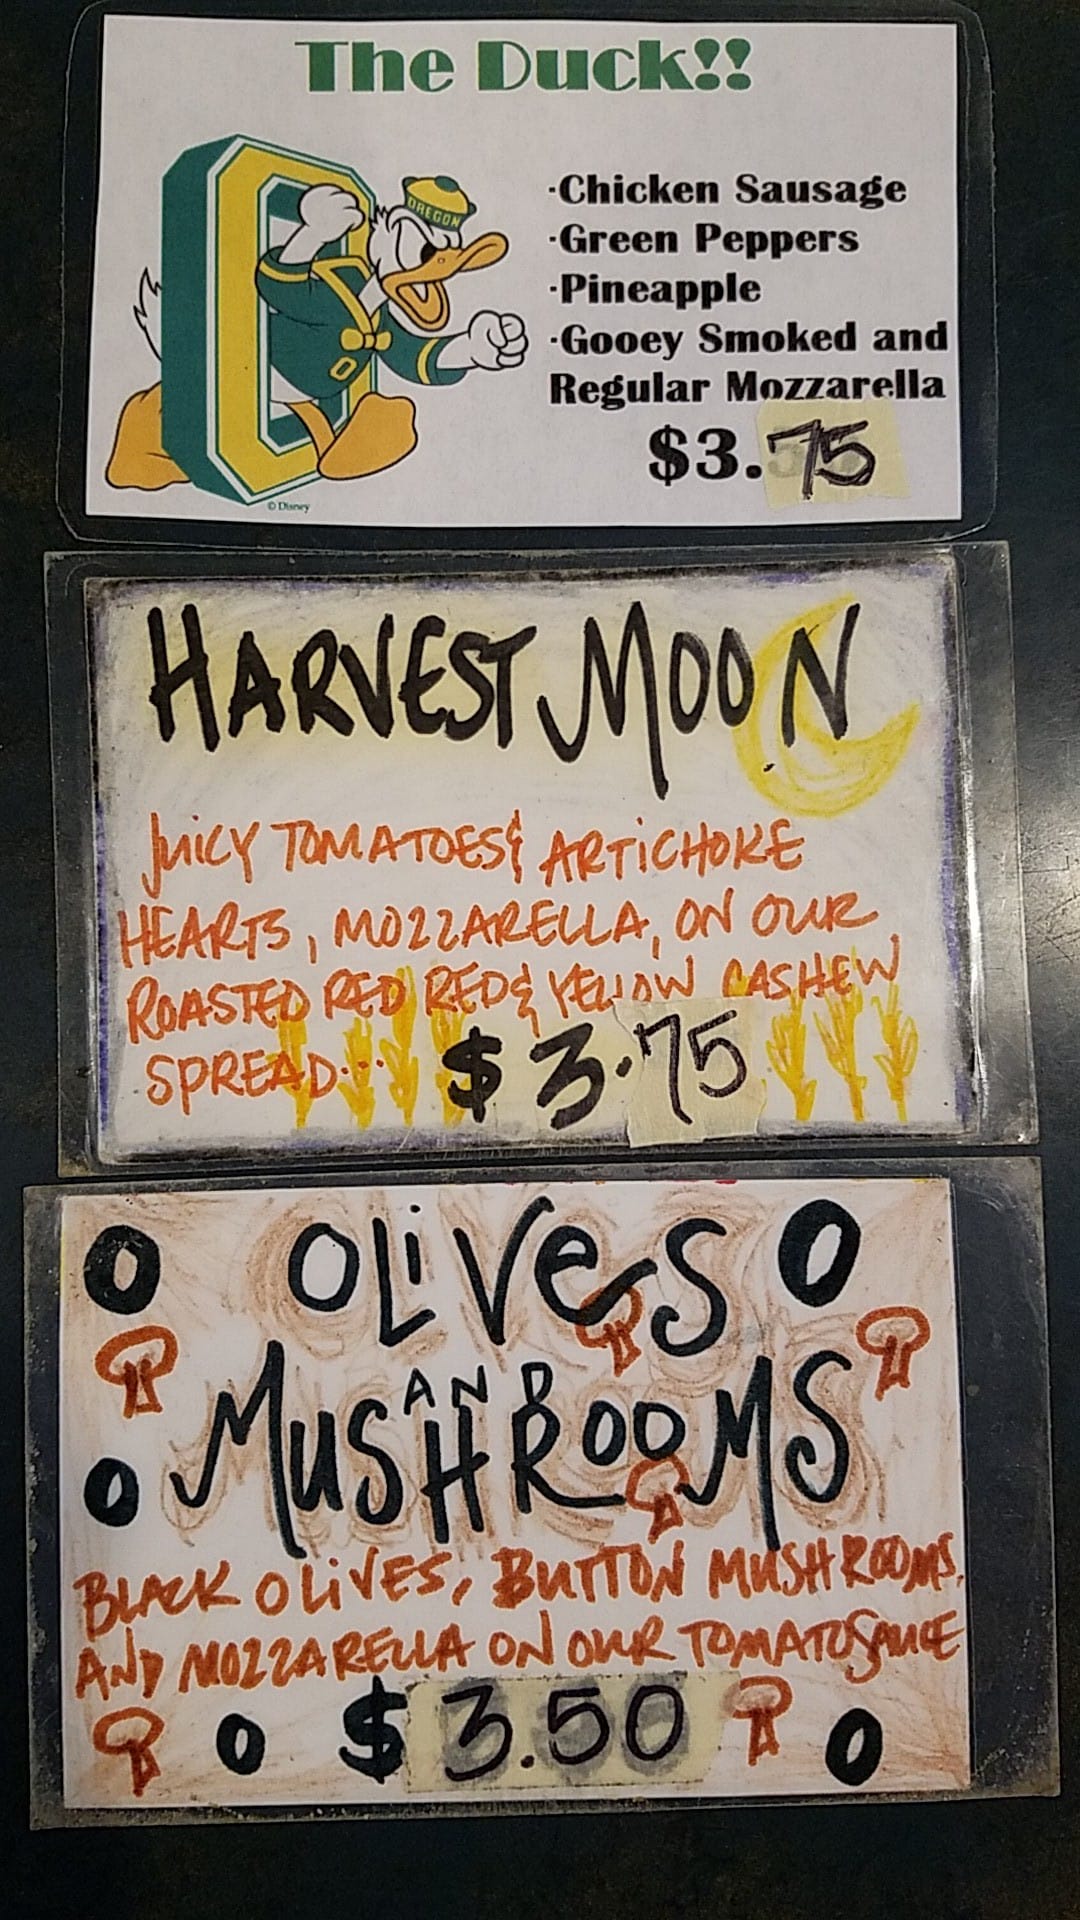 The Duck!!
OREGON
·Chicken Sausage
·Green Peppers
·Pineapple
·Gooey Smoked and
Regular Mozzarella
$3.75
© Disney
HARVEST MOON
JUICY TOMATOES & ARTICHOKE
HEARTS, MOZZARELLA, ON OUR
ROASTED RED RED & YELLOW CASHEW
SPREAD...
$3.75
OLIVES
AND
MUSHROOMS
BLACK OLIVES, BUTTON MUSHROOMS,
AND MOZZARELLA ON OUR TOMATO SAUCE
$3.50